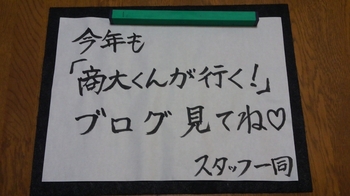 今年も
「商大くんが行く!」
ブログ見てね♡
スタッフ一同